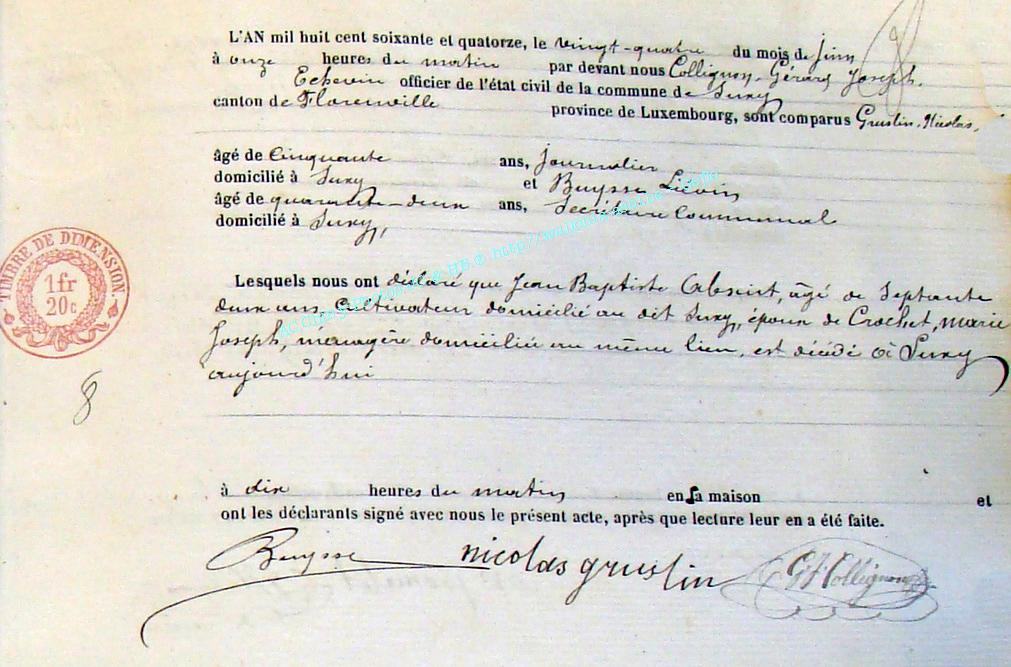 L'AN mil huit cent soixante et quatorze, le vingt-quatre du mois de Juin
à onze heures du matin par devant nous Collignon, Gérard Joseph,
Echevin officier de l'état civil de la commune de Suxy
canton de Florenville province de Luxembourg, sont comparus Gruslin, Nicolas,
âgé de Cinquante ans, Journalier
domicilié à Suxy et Buysse Liévin
âgé de quarante-deux ans, Secrétaire Communal
domicilié à Suxy,
TIMBRE DE DIMENSION
1 fr
20 c
Lesquels nous ont déclaré que Jean Baptiste, âgé de Septante
deux ans, Cultivateur domicilié au dit Suxy, époux de Crochet, Marie
Joseph, menagère domiciliée au même lieu, est décédé à Suxy
aujourd'hui
8
à dix heures du matin en sa maison et
ont les déclarants signé avec nous le présent acte, après que lecture leur en a été faite.
Buysse nicolas gruslin GJ Collignon